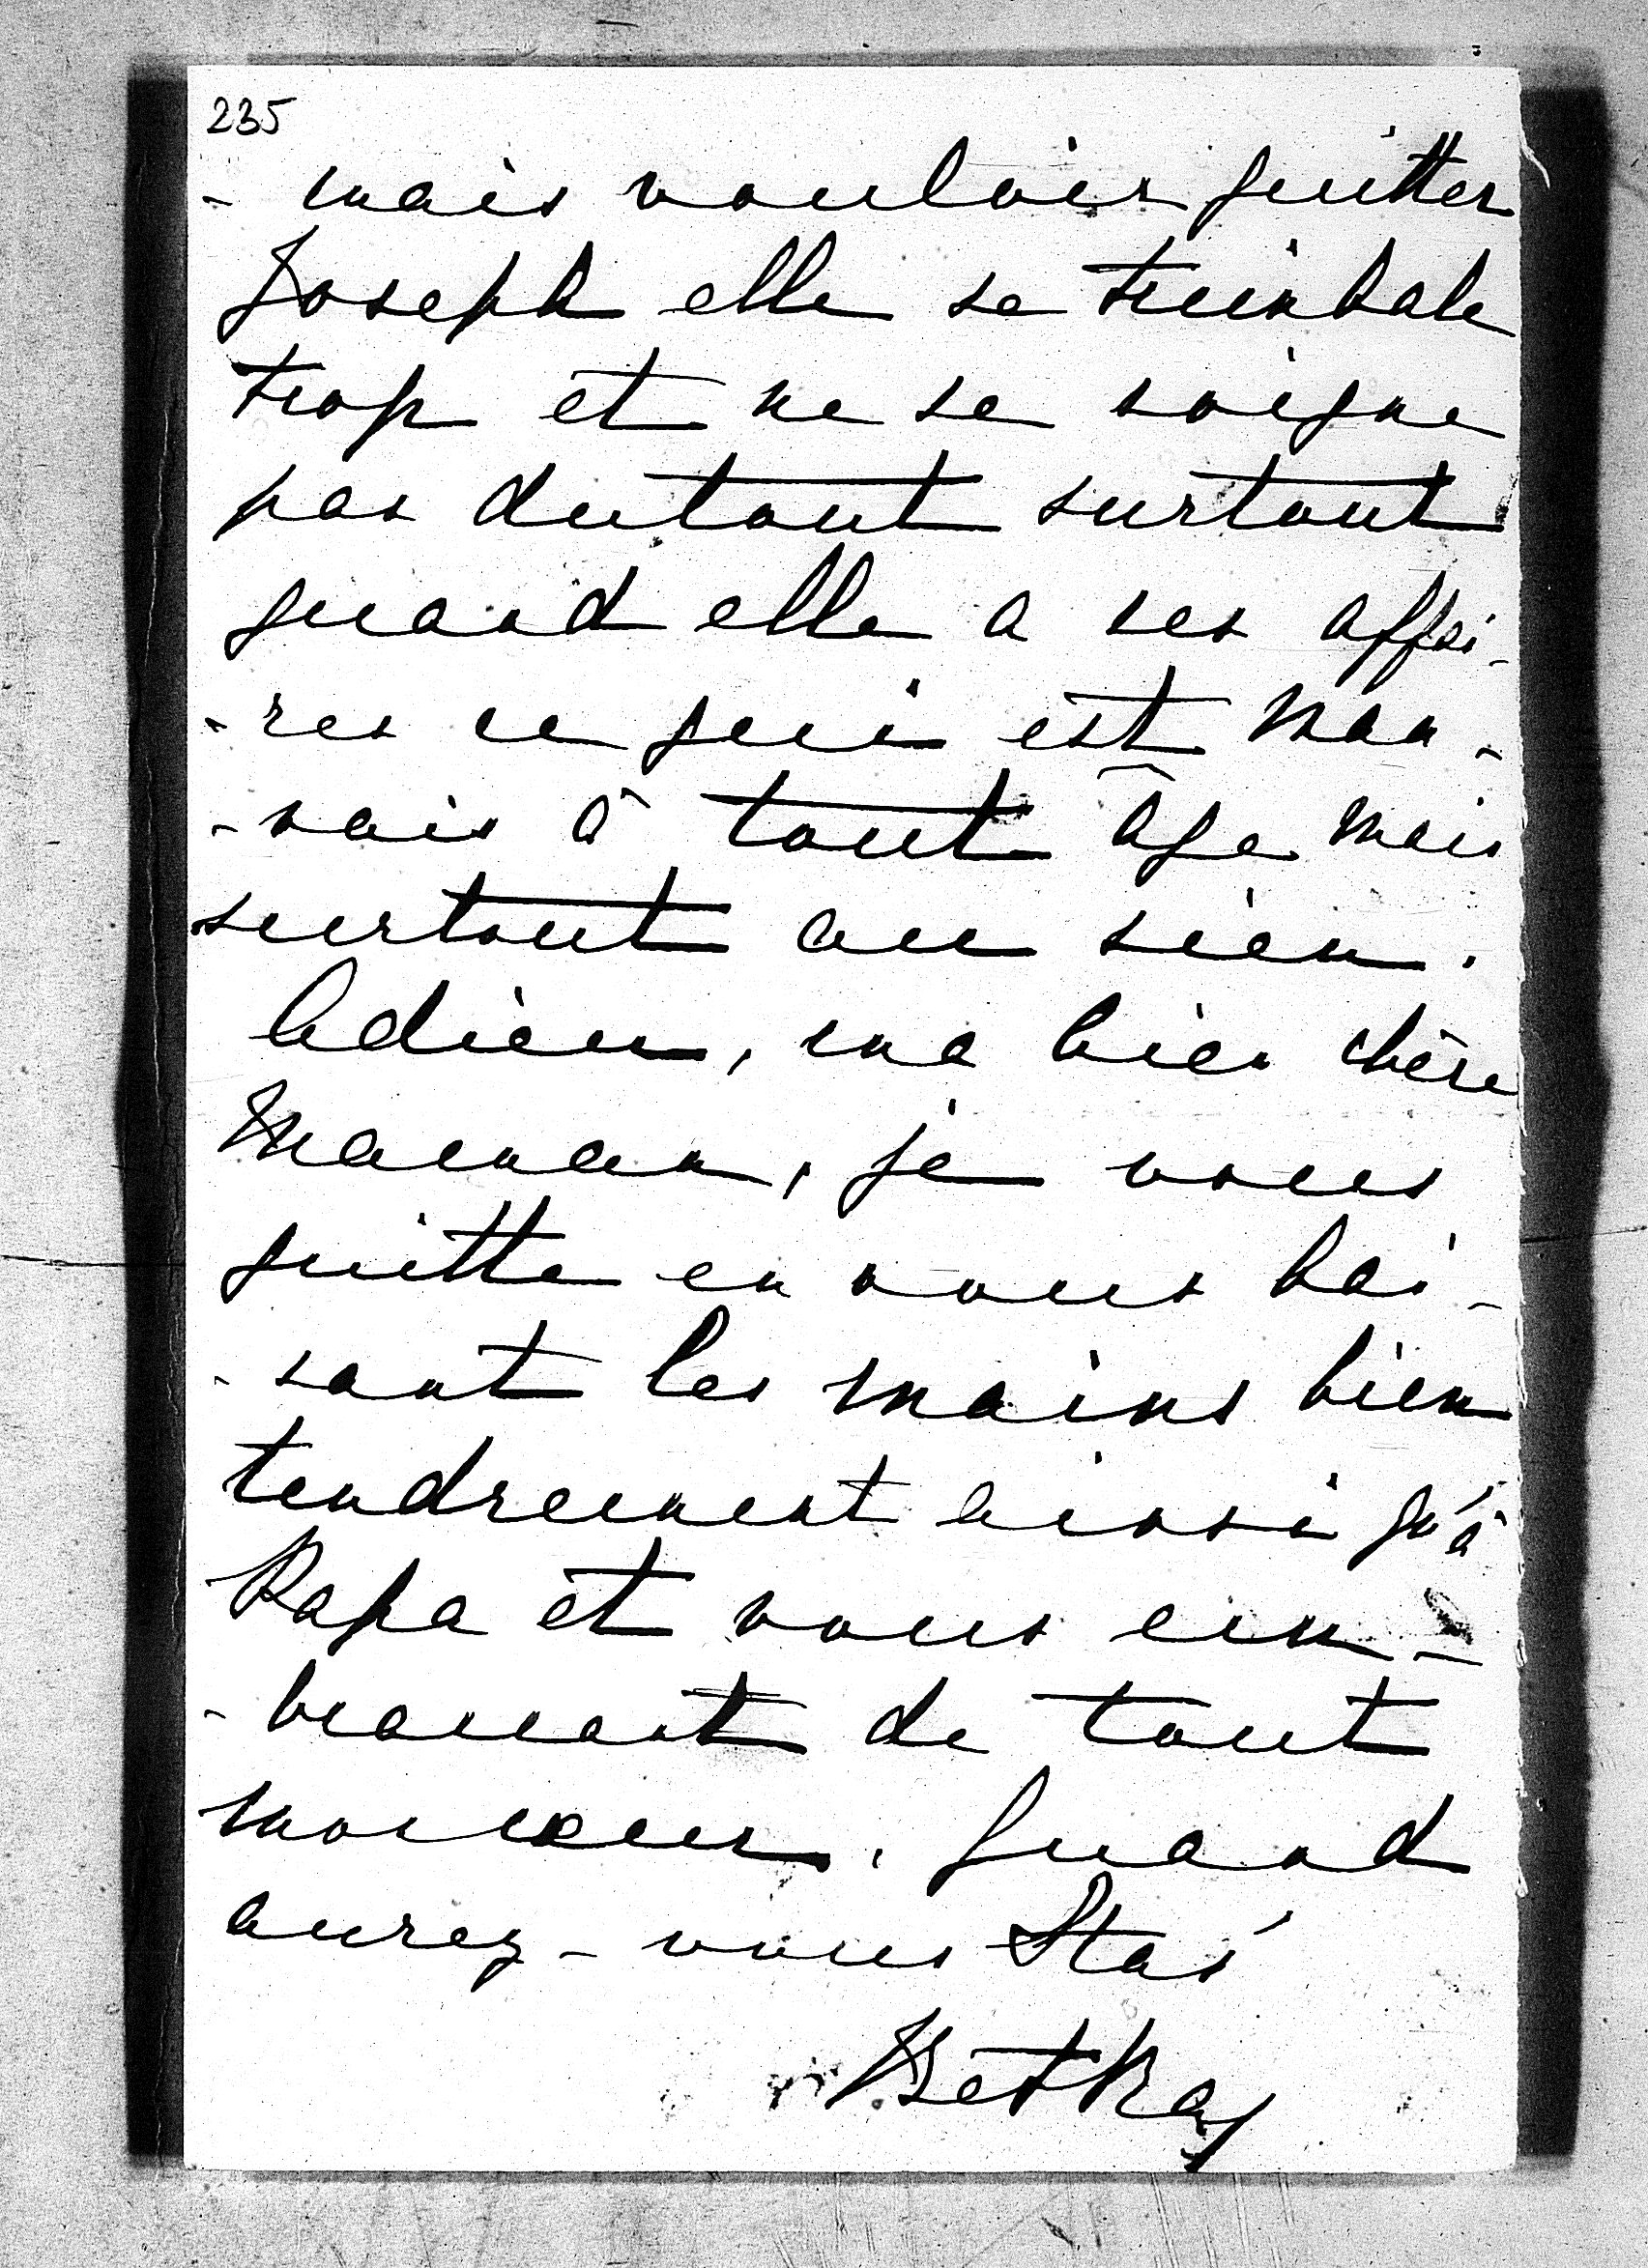 235
- mais vouloir quitter
Joseph elle se trimbale
trop et ne se soigne
pas dutout surtout
quand elle a ses affai-
-res ce qui est mau-
-vais à tout âge mais
surtout au sien.
Adieu, ma bien chère
Maman, je vous
quitte en vous bai-
-sant les mains bien
tendrement ainsi qu'à
Papa et vous em-
-brassant de tout
mon cœur. Quand
aurez-vous Staś
Betka